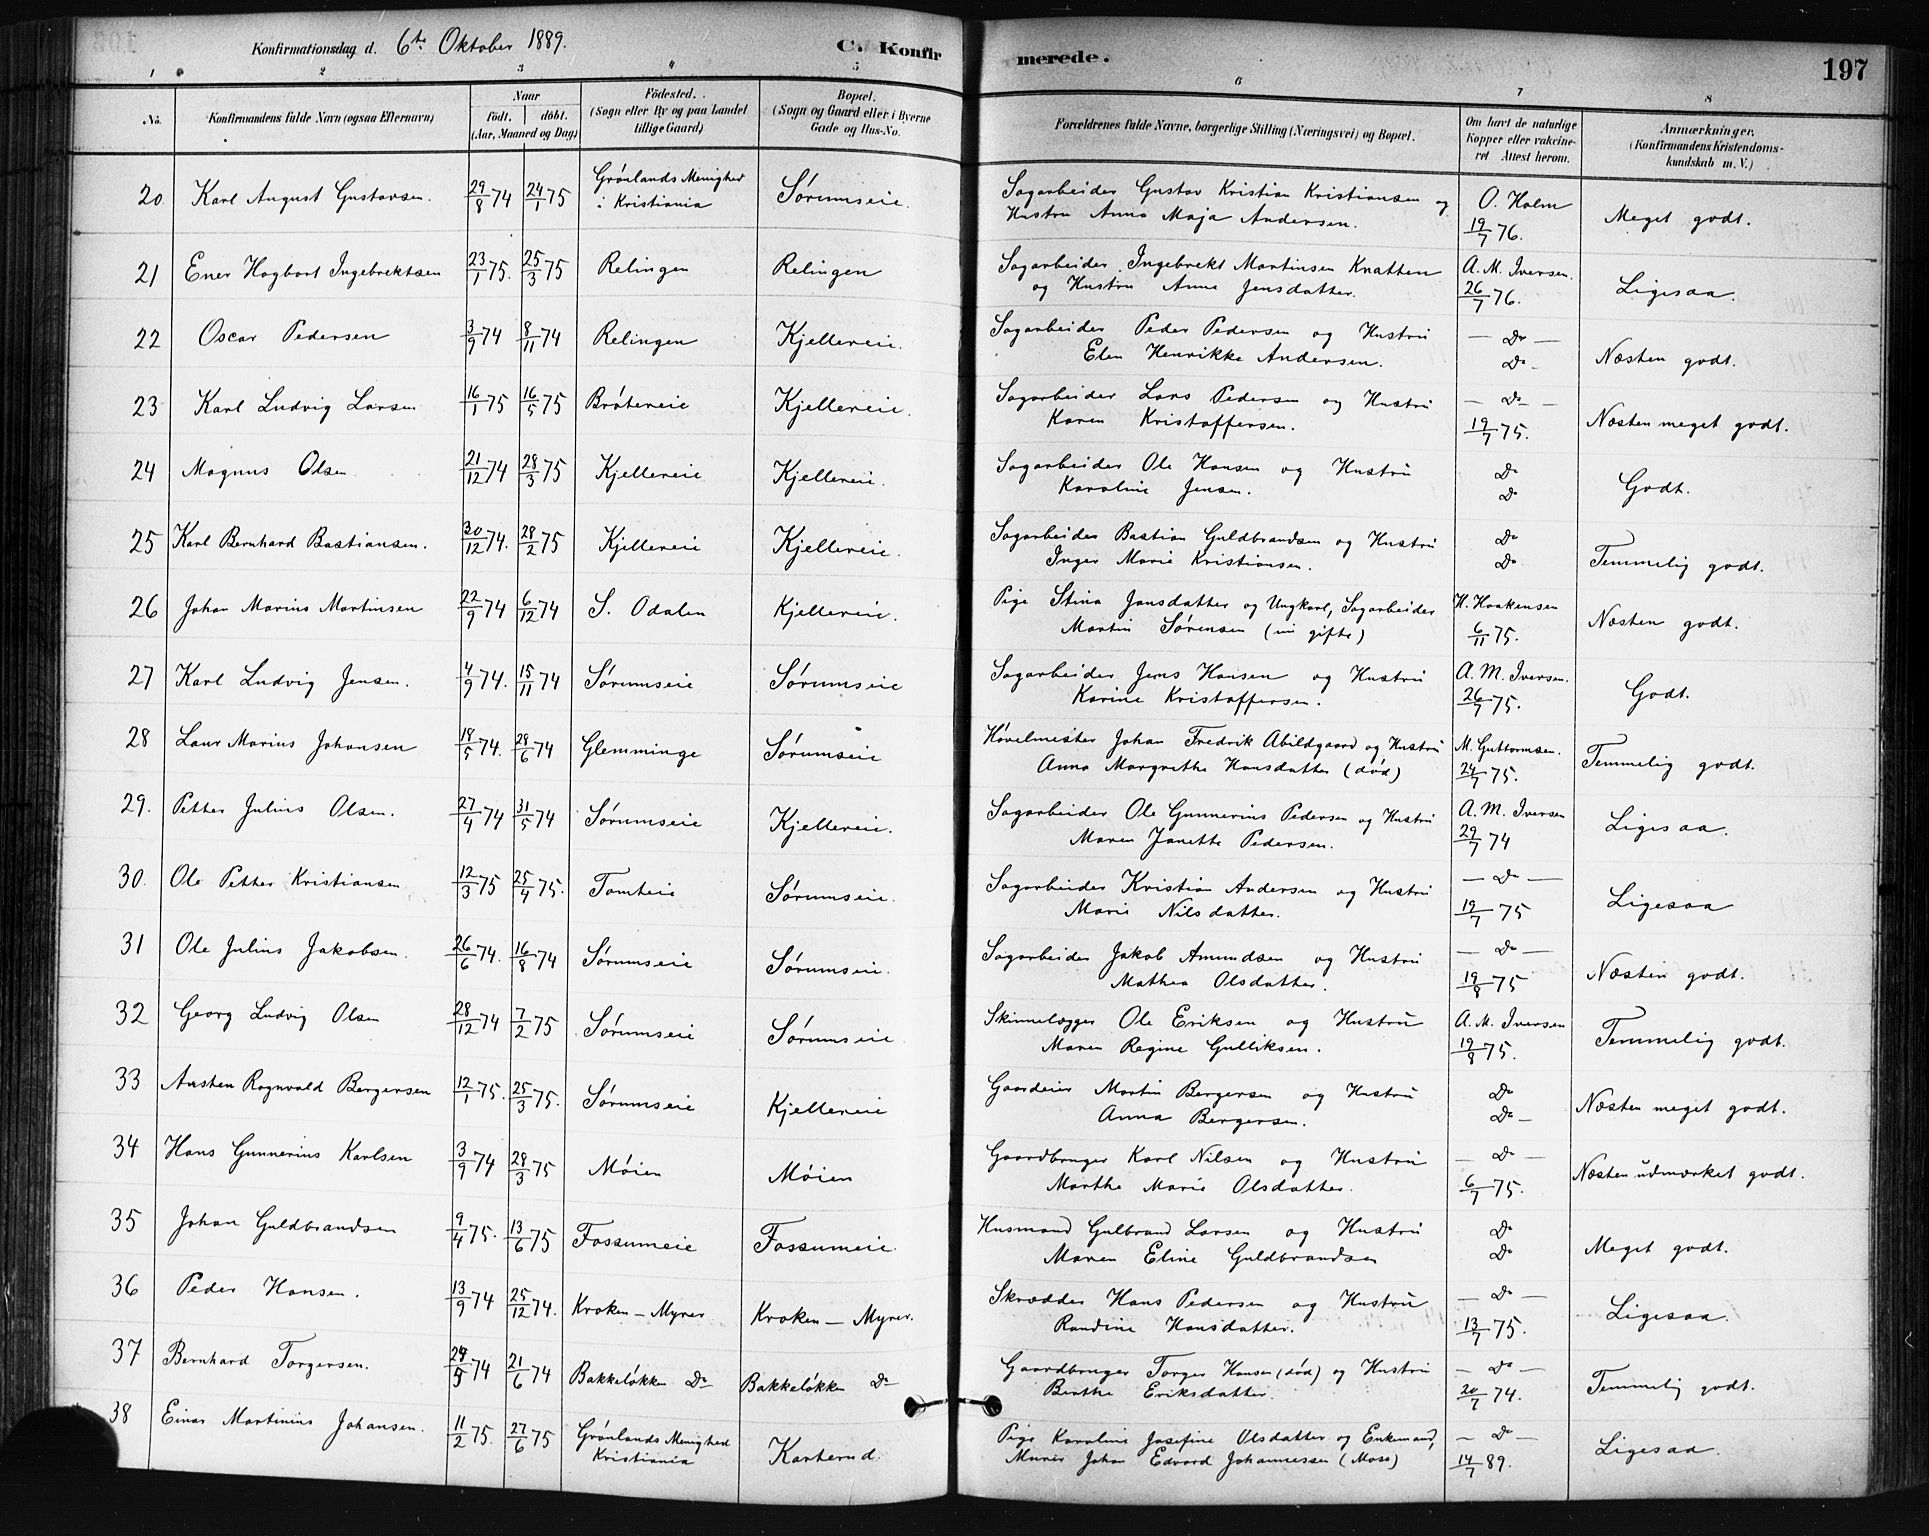 Konfirmationsdag d. 6te Oktober 1889. C. Konfirmerede. 197
1 2 3 4 5 6 7 8
No. Konfirmandens fulde Navn (ogsaa Efternavn) Naar født. døbt. (Aar, Maaned og Dag) Fødested. (Sogn eller By og paa Landet tillige Gaard) Bopæl. (Sogn og Gaard eller i Byerne Gade og Hus-No. Forældrenes fulde Navne, borgerlige Stilling (Næringsvei) og Bopæl. Om havt de naturlige Kopper eller vakcineret Attest herom. Anmærkninger. (Konfirmandens Kristendomskundskab m. V.)
20 Karl August Gustavsen. 29/8 74 24/1 75 Grønlands Menighed i Kristiania Sørumseie. Sagarbeider Gustav Kristian Kristiansen og Hustru Anna Maja Andersen. O. Holm 19/7 76. Meget godt.
21 Ener Hagbart Ingebrektsen 23/1 75. 25/3 75 Relingen Relingen Sagarbeider Ingebrekt Martinsen Knatten og Hustru Anne Jensdatter. A. M. Iversen. 26/7 76. Ligesaa.
22 Oscar Pedersen 3/9 74 8/11 74 Relingen Kjellereie. Sagarbeider Peder Pedersen og Hustru Elen Henrikke Andersen. — Do — Do - Næsten godt.
23 Karl Ludvig Larsen 16/1 75 16/5 75 Bråtereie Kjellereie. Sagarbeider Lars Pedersen og Hustru Karen Kristoffersen. — Do — 19/7 75. Næsten meget godt.
24 Magnus Olsen 21/12 74 28/3 75 Kjellereie Kjellereie. Sagarbeider Ole Hansen og Hustru Karoline Jensen. Do Do Godt.
25 Karl Bernhard Bastiansen. 30/12 74. 28/2 75 Kjellereie Kjellereie. Sagarbeider Bastian Guldbrandsen og Hustru Inger Marie Kristiansen. Do Do Temmelig godt.
26 Johan Marius Martinsen 22/9 74 6/12 74 S. Odalen Kjellereie. Pige Stina Jansdatter og Ungkarl, Sagarbeider Martin Sørensen (nu gifte) H. Haakensen 6/11 75. Næsten godt.
27 Karl Ludvig Jensen. 4/9 74. 15/11 74 Sørumseie Sørumseie Sagarbeider Jens Hansen og Hustru Karine Kristoffersen. A. M. Iversen. 26/7 75. Godt.
28 Laur Marius Johansen 18/5 74. 28/6 74 Glemminge Sørumseie Høvelmester Johan Fredrik Abildgaard og Hustru Anna Margrethe Hansdatter (død) M. Guttormsen. 24/7 75. Temmelig godt.
29. Petter Julius Olsen. 27/4 74 31/5 74 Sørumseie Kjellereie. Sagarbeider Ole Gunnerius Pedersen og Hustru Maren Janette Pedersen. A. M. Iversen 29/7 74 Ligesaa.
30. Ole Petter Kristiansen 12/3 75 25/4 75. Tomteie Sørumseie. Sagarbeider Kristian Andersen og Hustru Marie Nilsdatter. — Do — 19/7 75 Ligesaa
31 Ole Julius Jakobsen. 26/6 74. 16/8 74 Sørumseie Sørumseie. Sagarbeider Jakob Amundsen og Hustru Mathea Olsdatter. — Do — 19/8 75 Næsten godt.
32 Georg Ludvig Olsen 28/12 74 7/2 75 Sørumseie Sørumseie. Skinnelægger Ole Eriksen og Hustru Maren Regine Gulliksen. A. M. Iversen 19/8 75. Temmelig godt.
33 Austen Ragnvald Bergersen 12/1 75. 25/3 75. Sørumseie Kjellereie Gaardeier Martin Bergersen og Hustru Anna Bergersen. Do Do - Næsten meget godt.
34 Hans Gunnerius Karlsen 3/9 74 28/3 75 Møien Møien Gaardbruger Karl Nilsen og Hustru Marthe Marie Olsdatter. — Do — 6/7 75. Næsten udmærket godt.
35 Johan Guldbrandsen 9/4 75. 13/6 75 Fossumeie Fossumeie. Husmand Gulbrand Larsen og Hustru Maren Eline Guldbrandsen Do Do Meget godt.
36 Peder Hansen. 13/9 74 25/12 74. Kroken — Myrer Kroken — Myrer. Skrædder Hans Pedersen og Hustru Randine Hansdatter. — Do — 13/7 75. Ligesaa.
37 Bernhard Torgersen. 24/5 74 21/6 74 Bakkeløkken Do Bakkeløkken Do Gaardbruger Torger Hansen (død) og Hustru Berthe Eriksdatter. — Do — 20/7 74. Temmelig godt.
38 Einar Martinius Johansen. 11/2 75. 27/6 75 Grønlands Menighed Kristiania Karterud. Pige Karoline Josefine Olsdatter og Enkemand, Murer Johan Edvard Johannessen (Moss) — Do — 14/7 89. Ligesaa.